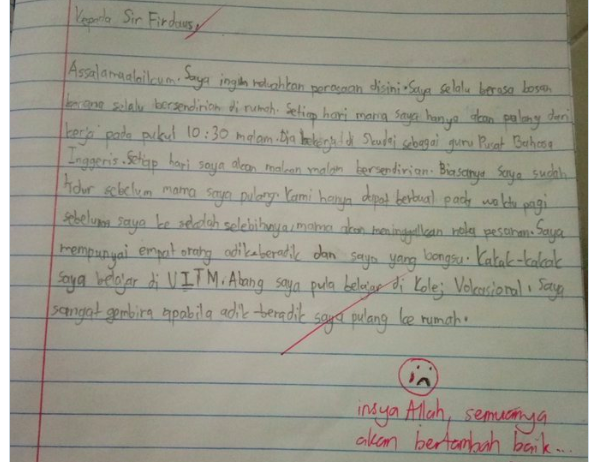 Kepada Sir Firdaus,
Assalamualaikum. Saya ingin meluahkan perasaan disini. Saya selalu berasa bosan
kerana selalu bersendirian di rumah. Setiap hari mama saya hanya akan pulang dari
kerja pada pukul 10:30 malam. Dia bekerja di Skudai sebagai guru Pusat Bahasa
Inggeris. Setiap hari saya akan makan malam bersendirian. Biasanya saya sudah
tidur sebelum mama saya pulang. Kami hanya dapat berbual pada waktu pagi
sebelum saya ke sekolah selebihnya, mama akan meninggalkan nota pesanan. Saya
mempunyai empat orang adik-beradik dan saya yang bongsu. Kakak-kakak
saya belajar di UITM. Abang saya pula belajar di Kolej Vokasional. Saya
sangat gembira apabila adik-beradik saya pulang ke rumah.
insya Allah, semuanya
akan bertambah baik...